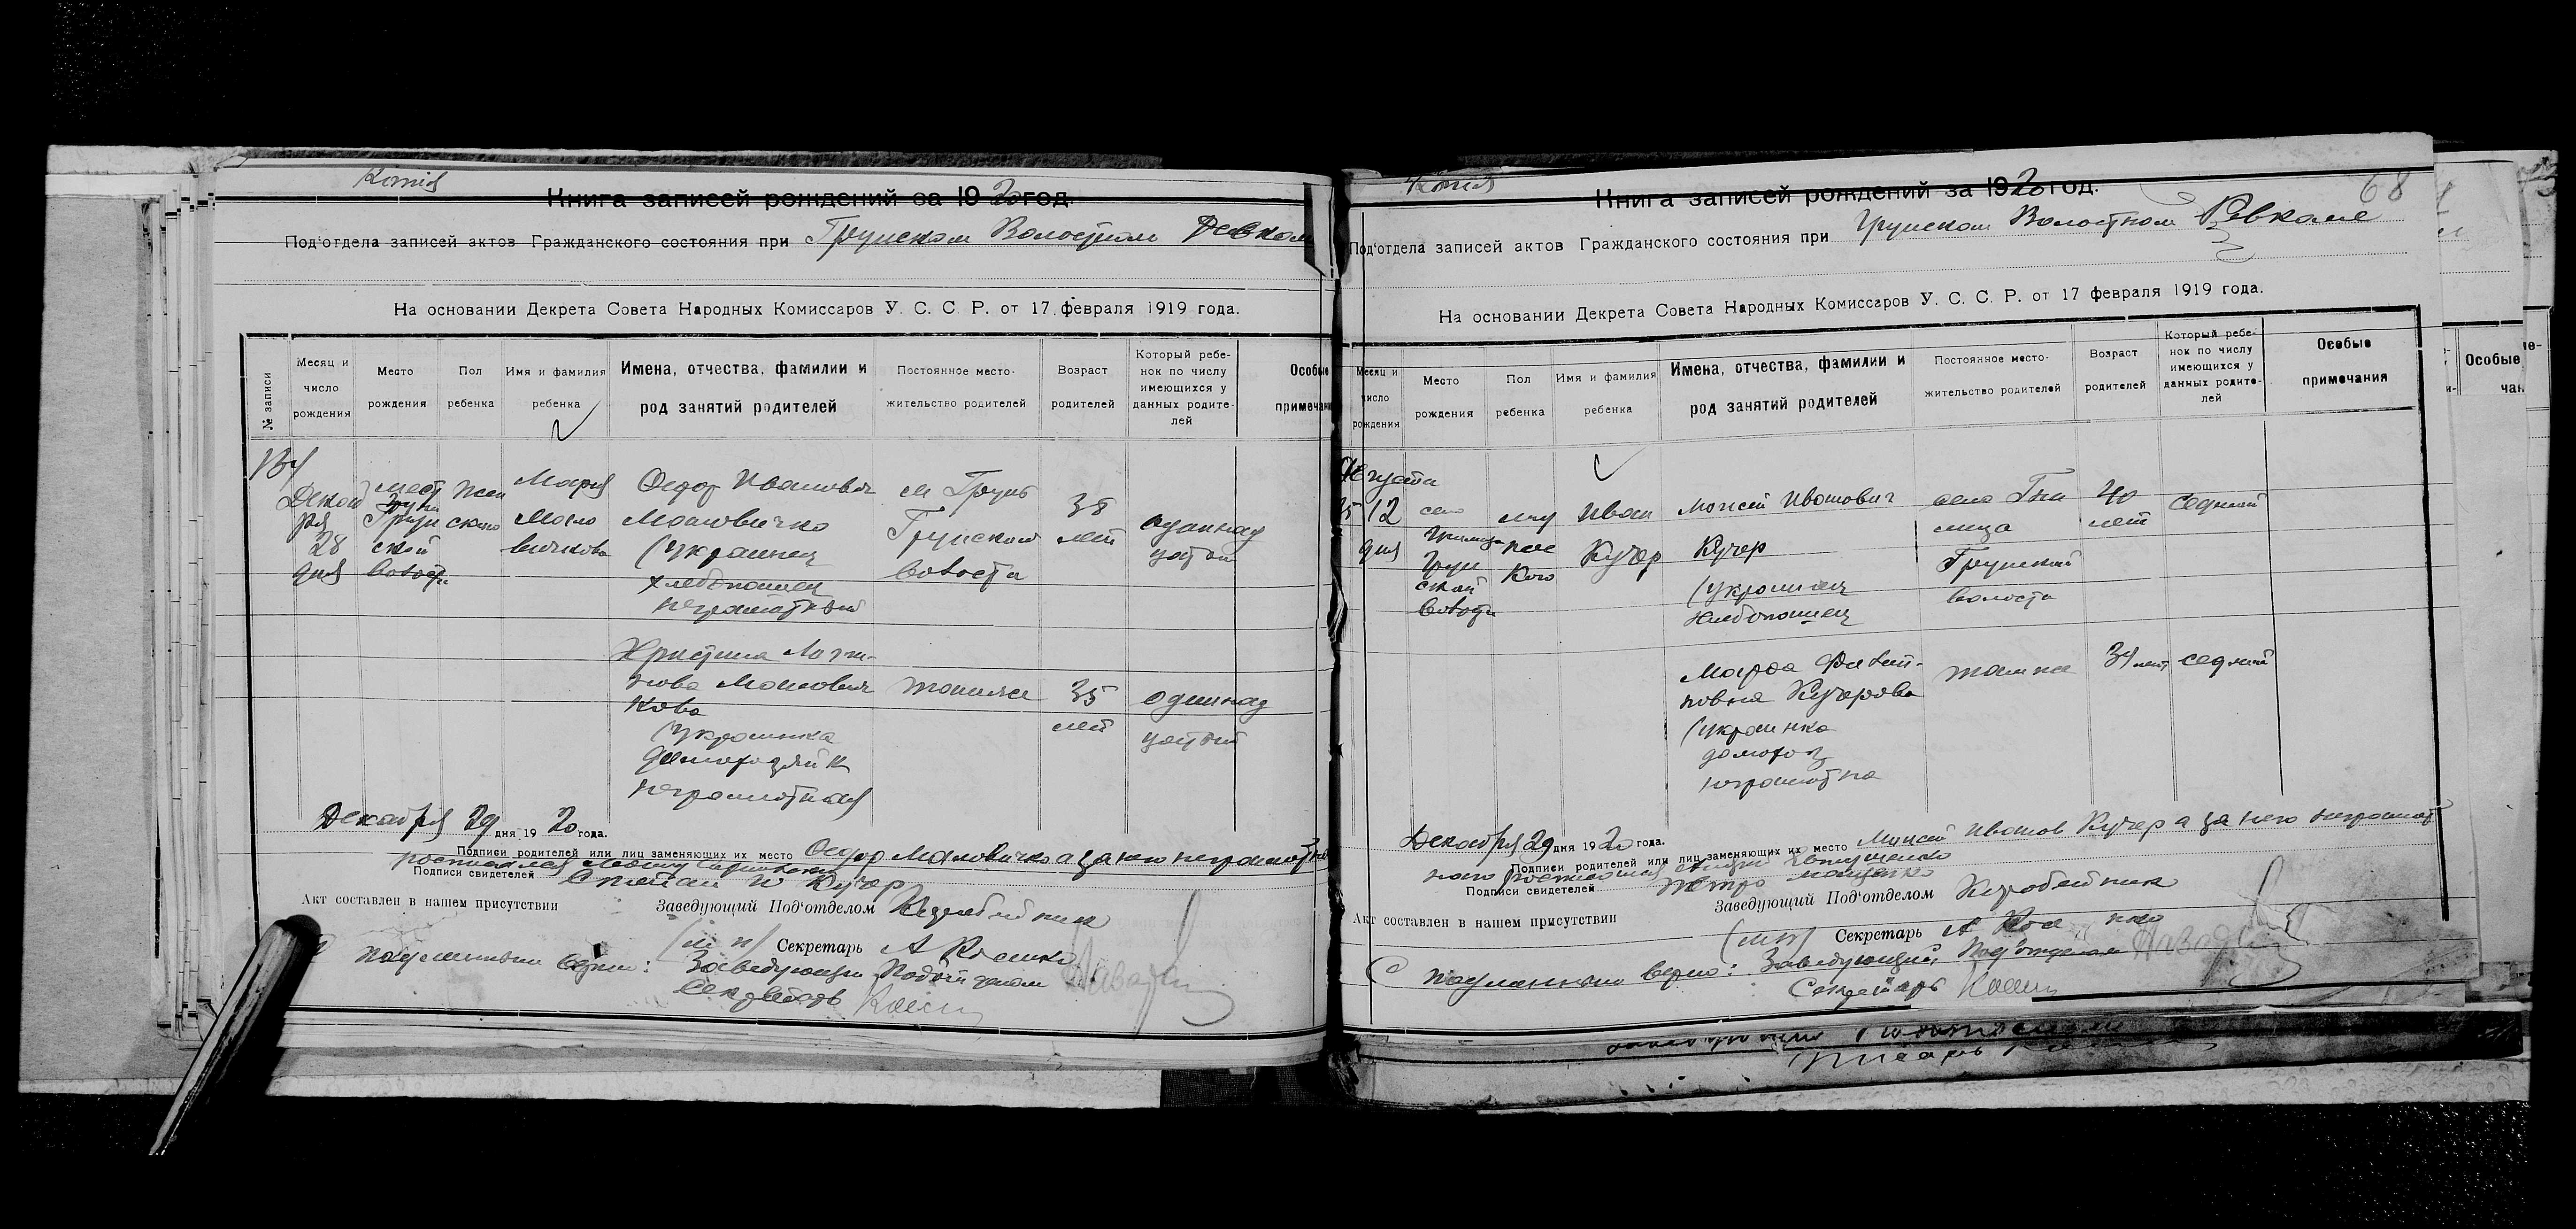 Копия
Книга записей рождений за 1920 год.
Под'отдела записей актов Гражданского состояния при Грунском Волостном Ревком
На основании Декрета Совета Народных Комиссаров У. С. С. Р. от 17 февраля 1919 года.
№ записи
Месяц и число рождения
Место рождения
Пол ребенка
Имя и фамилия ребенка
Имена, отчества, фамилии и род занятий родителей
Постоянное место-жительство родителей
Возраст родителей
Который ребе-нок по числу имеющихся у данных родите-лей
Особые примечан
134
Декаб
ря
28
дня
мест
Грунь
Грун
ской
волости
жен
ского
Мария
Мало
вичкова
Федор Иванович
Маловичко
(украинец
хлебопашец
неграмотный
м Грунь
Грунской
волости
38
лет
одиннад
цатый
Христина Логи-
нова Малович
кова
(украинка
домохозяйк
неграмотная
там же
35
лет
одиннад
цатый
Декабря 29 дня 1920 года.
Подписи родителей или лиц заменяющих их место Федор Маловичко а за него неграмотно
росписался
Подписи свидетелей Степан Кучер
Акт составлен в нашем присутствии Заведующий Под'отделом Коробейник
(м п) Секретарь А
С подлинным верно: Заведующий Подотделом
Секретарь
Копия
68
Книга записей рождений за 1920 год.
Под'отдела записей актов Гражданского состояния при Грунском Волостном Ревкоме
На основании Декрета Совета Народных Комиссаров У. С. С. Р. от 17 февраля 1919 года.
Месяц и число рождения
Место рождения
Пол ребенка
Имя и фамилия ребенка
Имена, отчества, фамилии и род занятий родителей
Постоянное место-жительство родителей
Возраст родителей
Который ребе-нок по числу имеющихся у данных родите-лей
Особые примечания
Августа
12
дня
село
Грун
ской
волости
муж
ско
Иван
Кучер
Моисей Иванович
Кучер
(украинец
хлебопашец
села Гни
лица
Грунской
волости
40
лет
седмой
Марфа
Кучерова
(украинка
домохоз
неграмотна
там же
34 лет
седмой
Декабря 29 дня 1920 года.
Подписи родителей или лиц заменяющих их место Моисей Иванов Кучер а за него неграмот
ного росписался
Подписи свидетелей Петро
Акт составлен в нашем присутствии Заведующий Под'отделом Коробейник
(м п) Секретарь А
С подлинным верно: Заведующий Подотделом
Секретарь
Особые